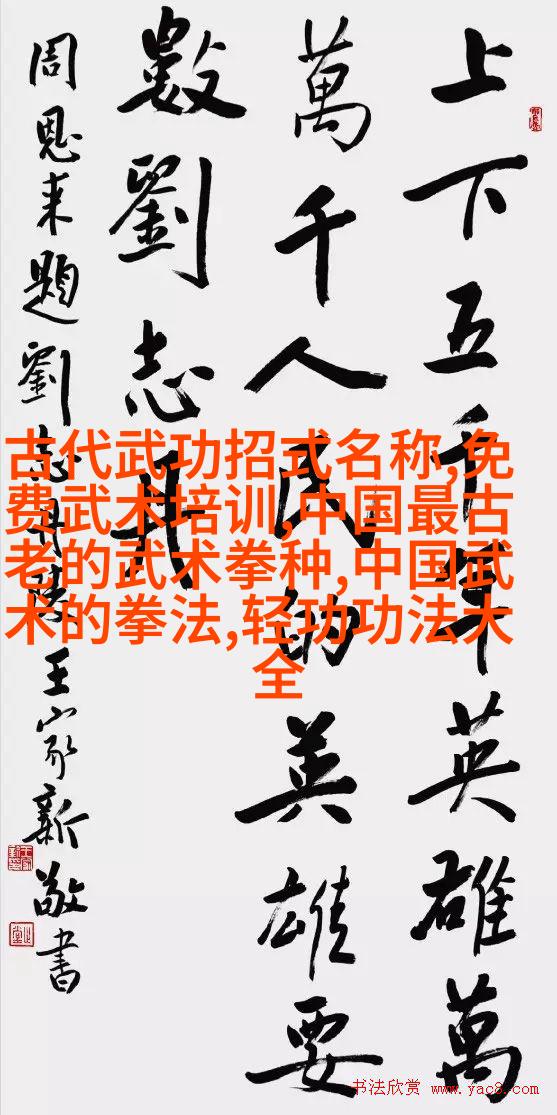 上下五千年英雄萬
萬千人民的英雄要
數劉志丹
周恩来題劉志丹陵王家新敬書
古代武功招式名称,免
费武术培训,中国最古
老的武术拳种,中国武
术的拳法,轻功功法大
全
书法欣赏 www.yac8.com